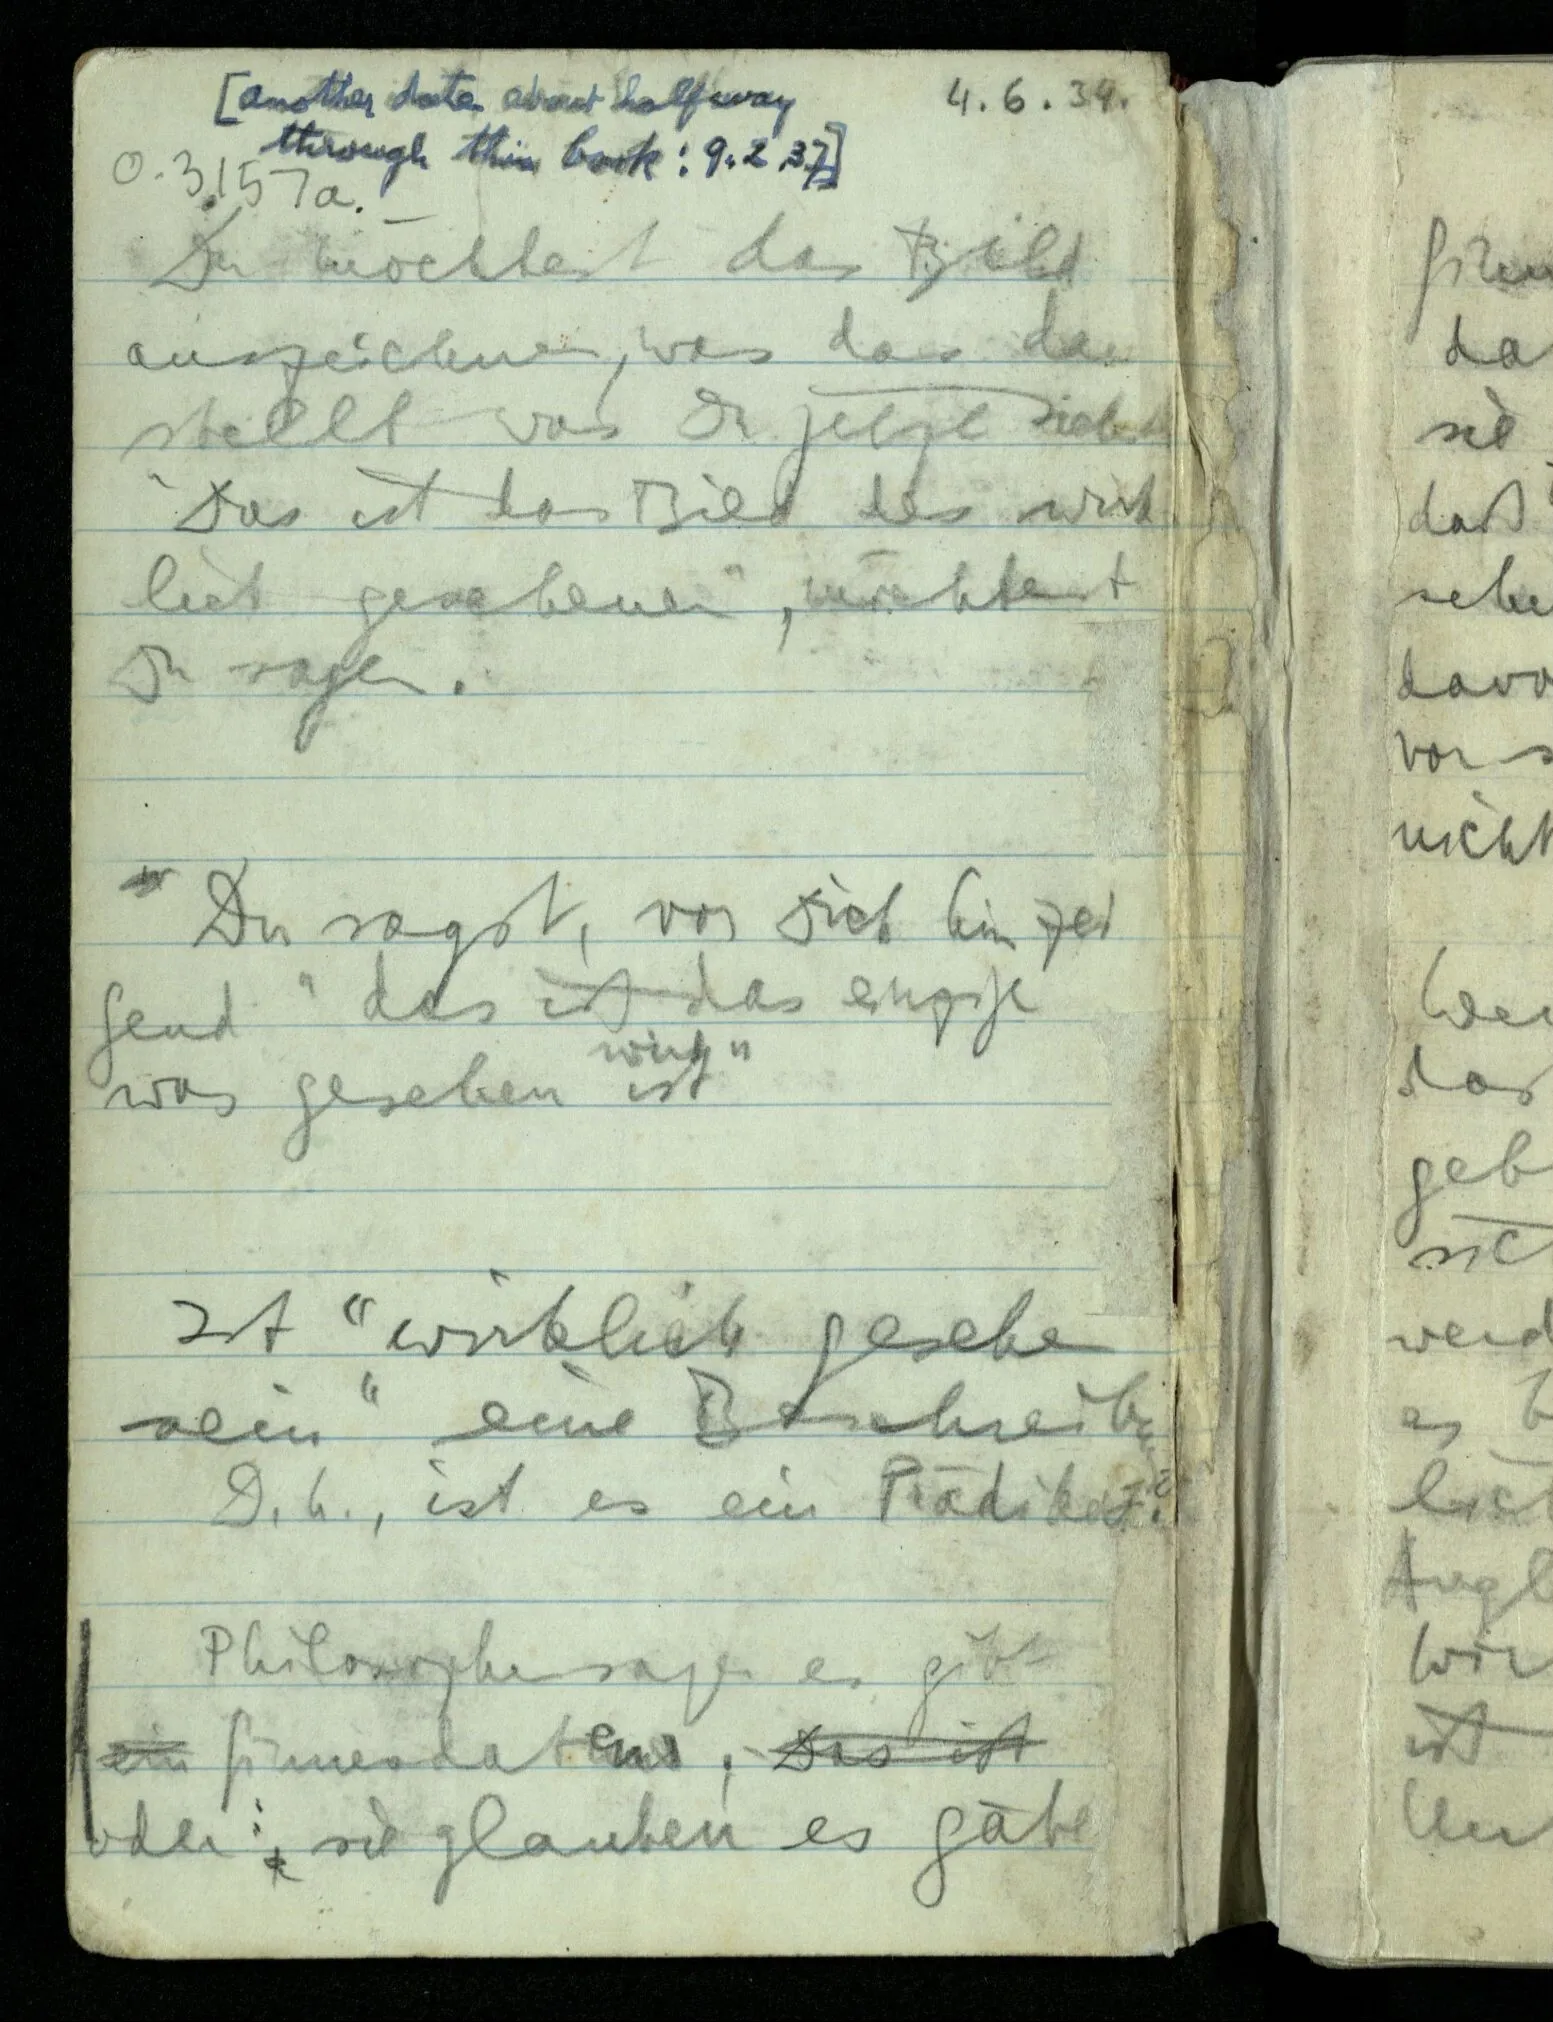 [another date about halfway 4.6.34.
through this book: 9.2.37]
0.3.157a.
Du möchtest das Bild
auszeichnen, was das dar
stellt was Du jetzt siehst
"Das ist das Bild des wirk
lich gesehenen", möchtest
Du sagen.
Du sagst, vor Dich hin zei
gend "das ist das einzige
wird"
was gesehen ist"
Ist "wirklich gesehen
sein" eine Beschreibung
D.h., ist es ein Prädikat?
Philosophen sagen es gibt
ein Sinnesdatens, Das ist
oder: sie glauben es gäbe
da
sie
daß
sehe
davo
vor s
nicht
das
geb
werd
es b
lich
Wir
ist